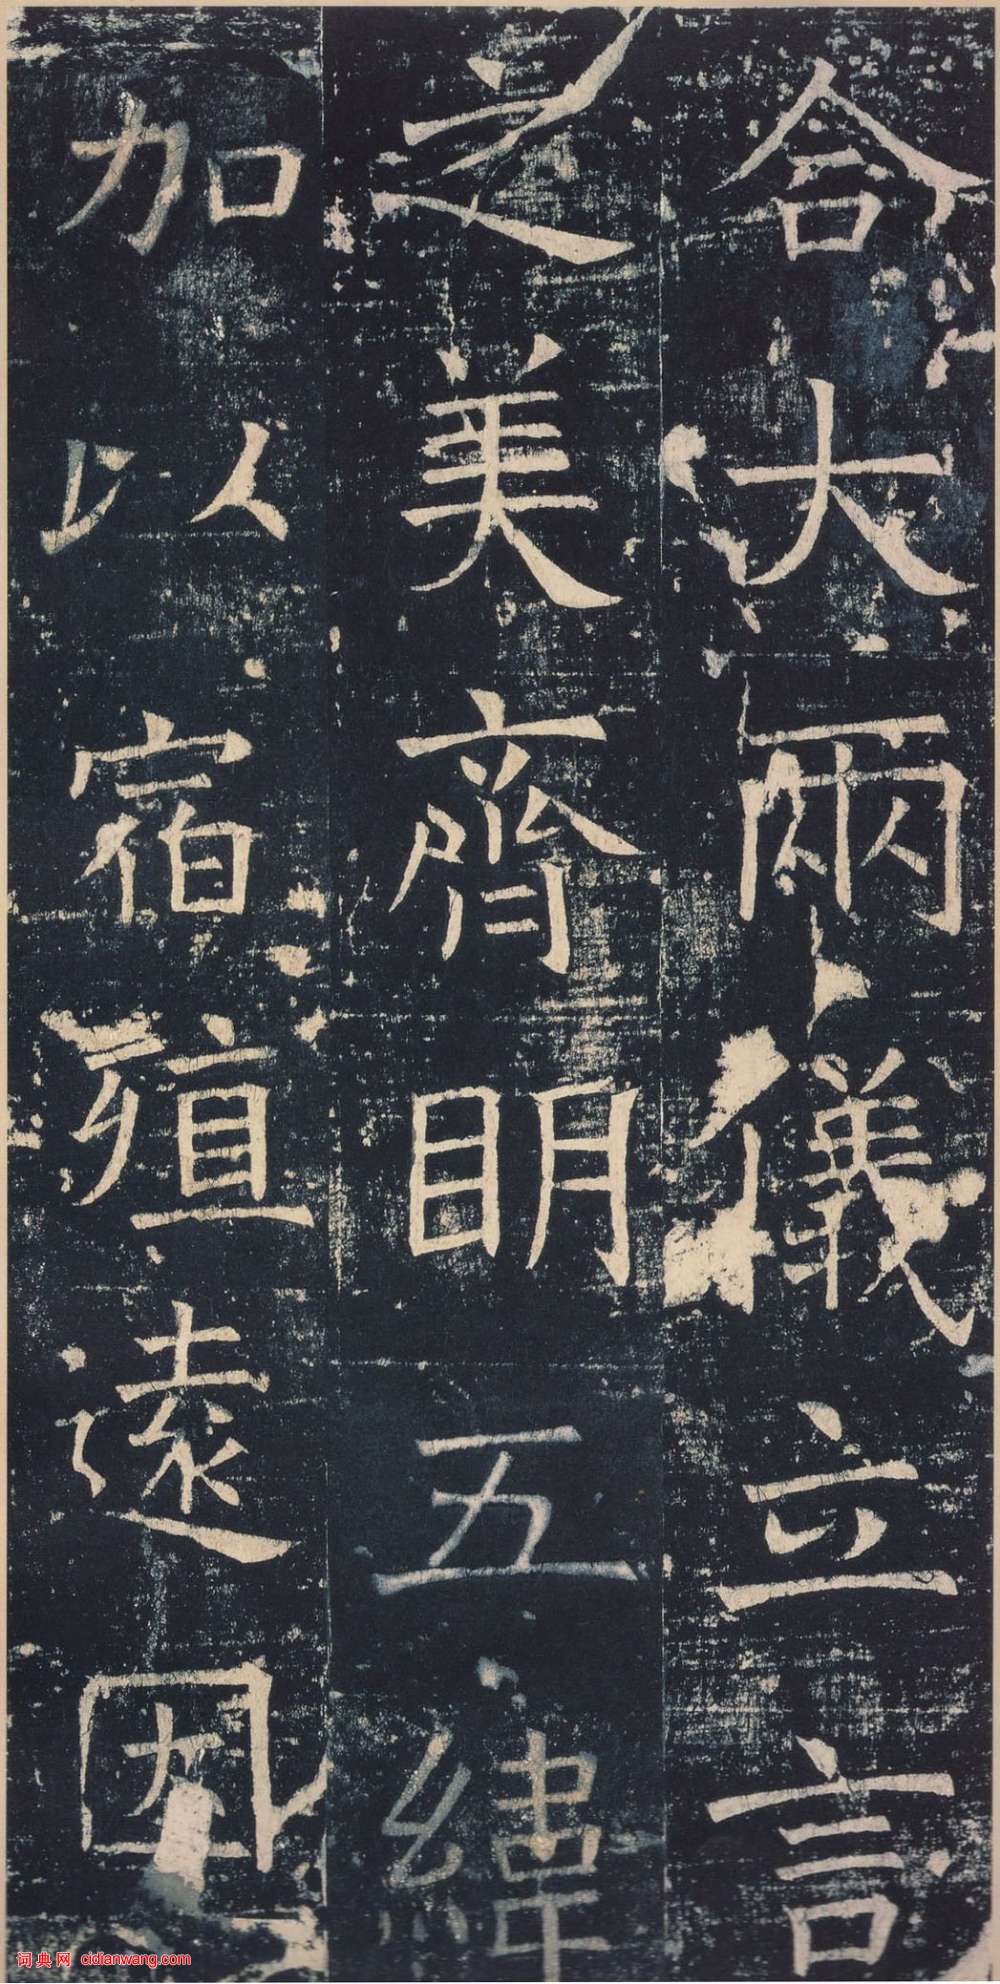 合大兩儀立言
之美齊明五緯
加以宿殖遠因
词典网 cidianwang.com